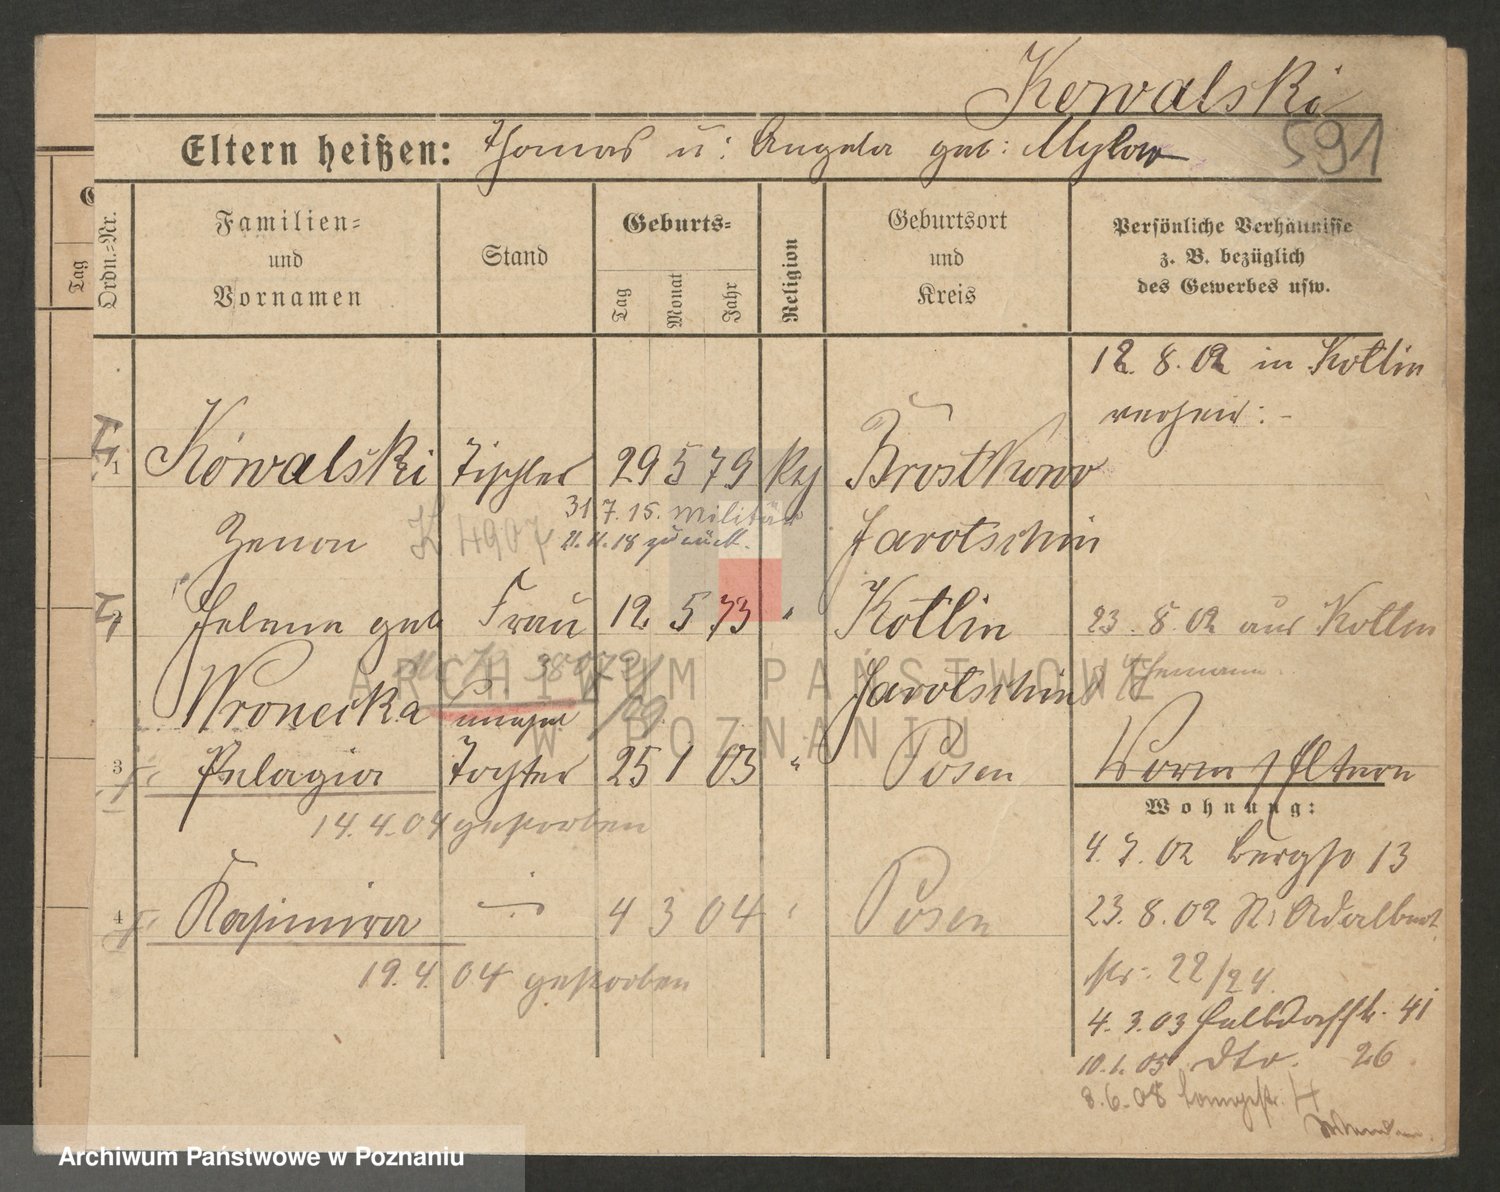 Kowalski
591
Eltern heißen: Thomas u: Angela geb: Mylow
Ordn.-Nr.
Familien- und Vornamen
Stand
Geburts-
Tag
Monat
Jahr
Religion
Geburtsort und Kreis
Persönliche Verhältnisse
z. B. bezüglich
des Gewerbes usw.
Tag
12. 8. 02 in Kotlin
verheir:-
1 Kowalski Tischler 29 5 79 kth Brostkowo
31.7.15. Militär
Zenon K. 4907 Jarotschin
21.11.18 zurück.
Helene geb Frau 12. 5 73 " Kotlin 23. 8. 02 aus Kotlin
Wronecka Jarotschin z. Ehemann.
3 Pelagia Tochter 25 1 03 " Posen Vorm s/ Eltern
14.4.04 gestorben
Wohnung:
4. 7. 02 Bergstr 13
4 Kasimira 4 3 04 " Posen 23. 8. 02 St: Adalbert
19.4.04 gestorben str: 22/24
4. 3. 03 Halbdorfstr. 41
10.1.05 dto. 26
8.6.08 Langestr. 4
ARCHIWUM PAŃSTWOWE
W POZNANIU
Archiwum Państwowe w Poznaniu